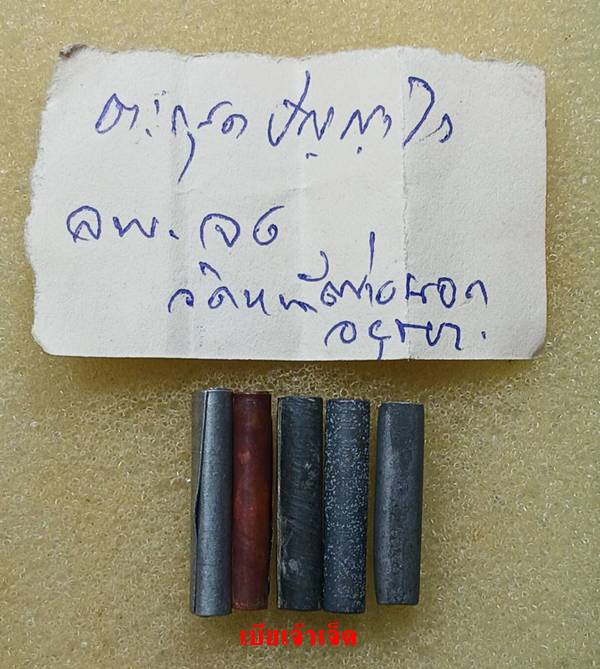 ตะกรุด ปัญญาไว
ลพ. จง
วัดหน้าต่างนอก
อยุธยา.
เบียเจ้าเจ็ด